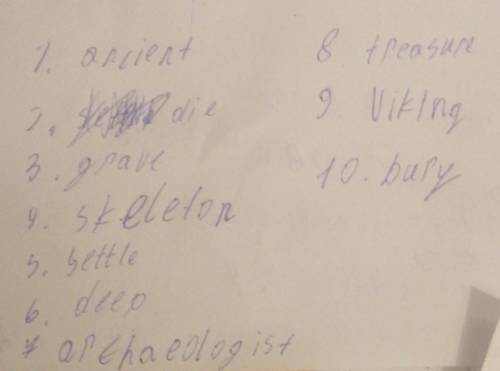 1. ancient
2. die
3. grave
4. skeleton
5. settle
6. deep
7 archaeologist
8 treasure
9 Viking
10. bury